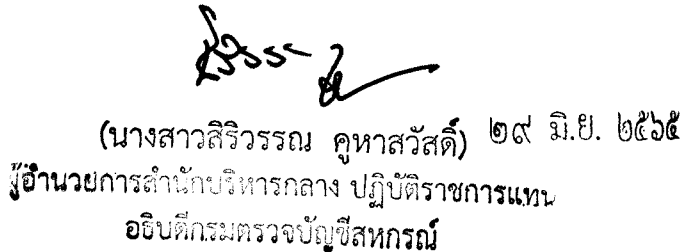 (นางสาวสิริวรรณ คูหาสวัสดิ์) ๒๙ มิ.ย. ๒๕๖๕
ผู้อำนวยการสำนักบริหารกลาง ปฏิบัติราชการแทน
อธิบดีกรมตรวจบัญชีสหกรณ์